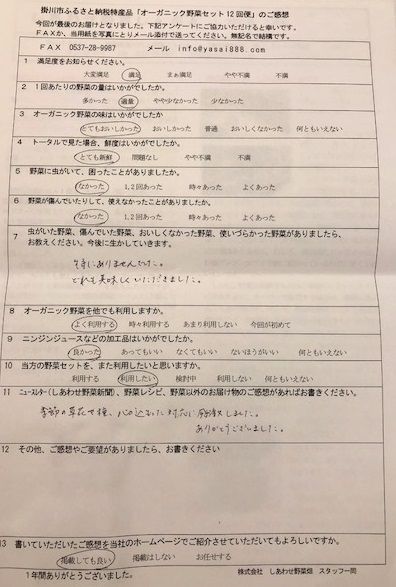 掛川市ふるさと納税特産品「オーガニック野菜セット12回便」のご感想
今回が最後のお届けとなりました。下記アンケートにご協力いただけると幸いです。
FAXか、当用紙を写真にとりメール添付で送ってください。無記名で結構です。
FAX 0537-28-9987 メール info@yasai888.com
1 満足度をお知らせください。
大変満足 満足 まあ満足 やや不満 不満
2 1回あたりの野菜の量はいかがでしたか。
多かった 適量 やや少なかった 少なかった
3 オーガニック野菜の味はいかがでしたか
とてもおいしかった おいしかった 普通 おいしくなかった 何ともいえない
4 トータルで見た場合、鮮度はいかがでしたか。
とても新鮮 問題なし やや不満 不満
5 野菜に虫がいて、困ったことがありましたか。
なかった 1,2回あった 時々あった よくあった
6 野菜が傷んでいたりして、使えなかったことがありましたか。
なかった 1,2回あった 時々あった よくあった
7 虫がいた野菜、傷んでいた野菜、おいしくなかった野菜、使いづらかった野菜がありましたら、
お教えください。今後に生かしていきます。
特にありませんでした。
どれも美味しくいただきました。
8 オーガニック野菜を他でも利用しますか。
よく利用する 時々利用する あまり利用しない 今回が初めて
9 ニンジンジュースなどの加工品はいかがでしたか。
良かった あってもいい なくてもいい ないほうがいい 何ともいえない
10 当方の野菜セットを、また利用したいと思いますか。
利用する 利用したい 検討中 利用しない 何ともいえない
11 ニュースレター(しあわせ野菜新聞)、野菜レシピ、野菜以外のお届け物のご感想があればお書きください。
季節の草花や種、心込もった対応に感激しました。
ありがとうございました。
12 その他、ご感想やご要望がありましたら、お書きください
13 書いていただいたご感想を当社のホームページでご紹介させていただいてもよろしいですか。
掲載しても良い 掲載はしない お任せする
1年間ありがとうございました。 株式会社 しあわせ野菜畑 スタッフ一同